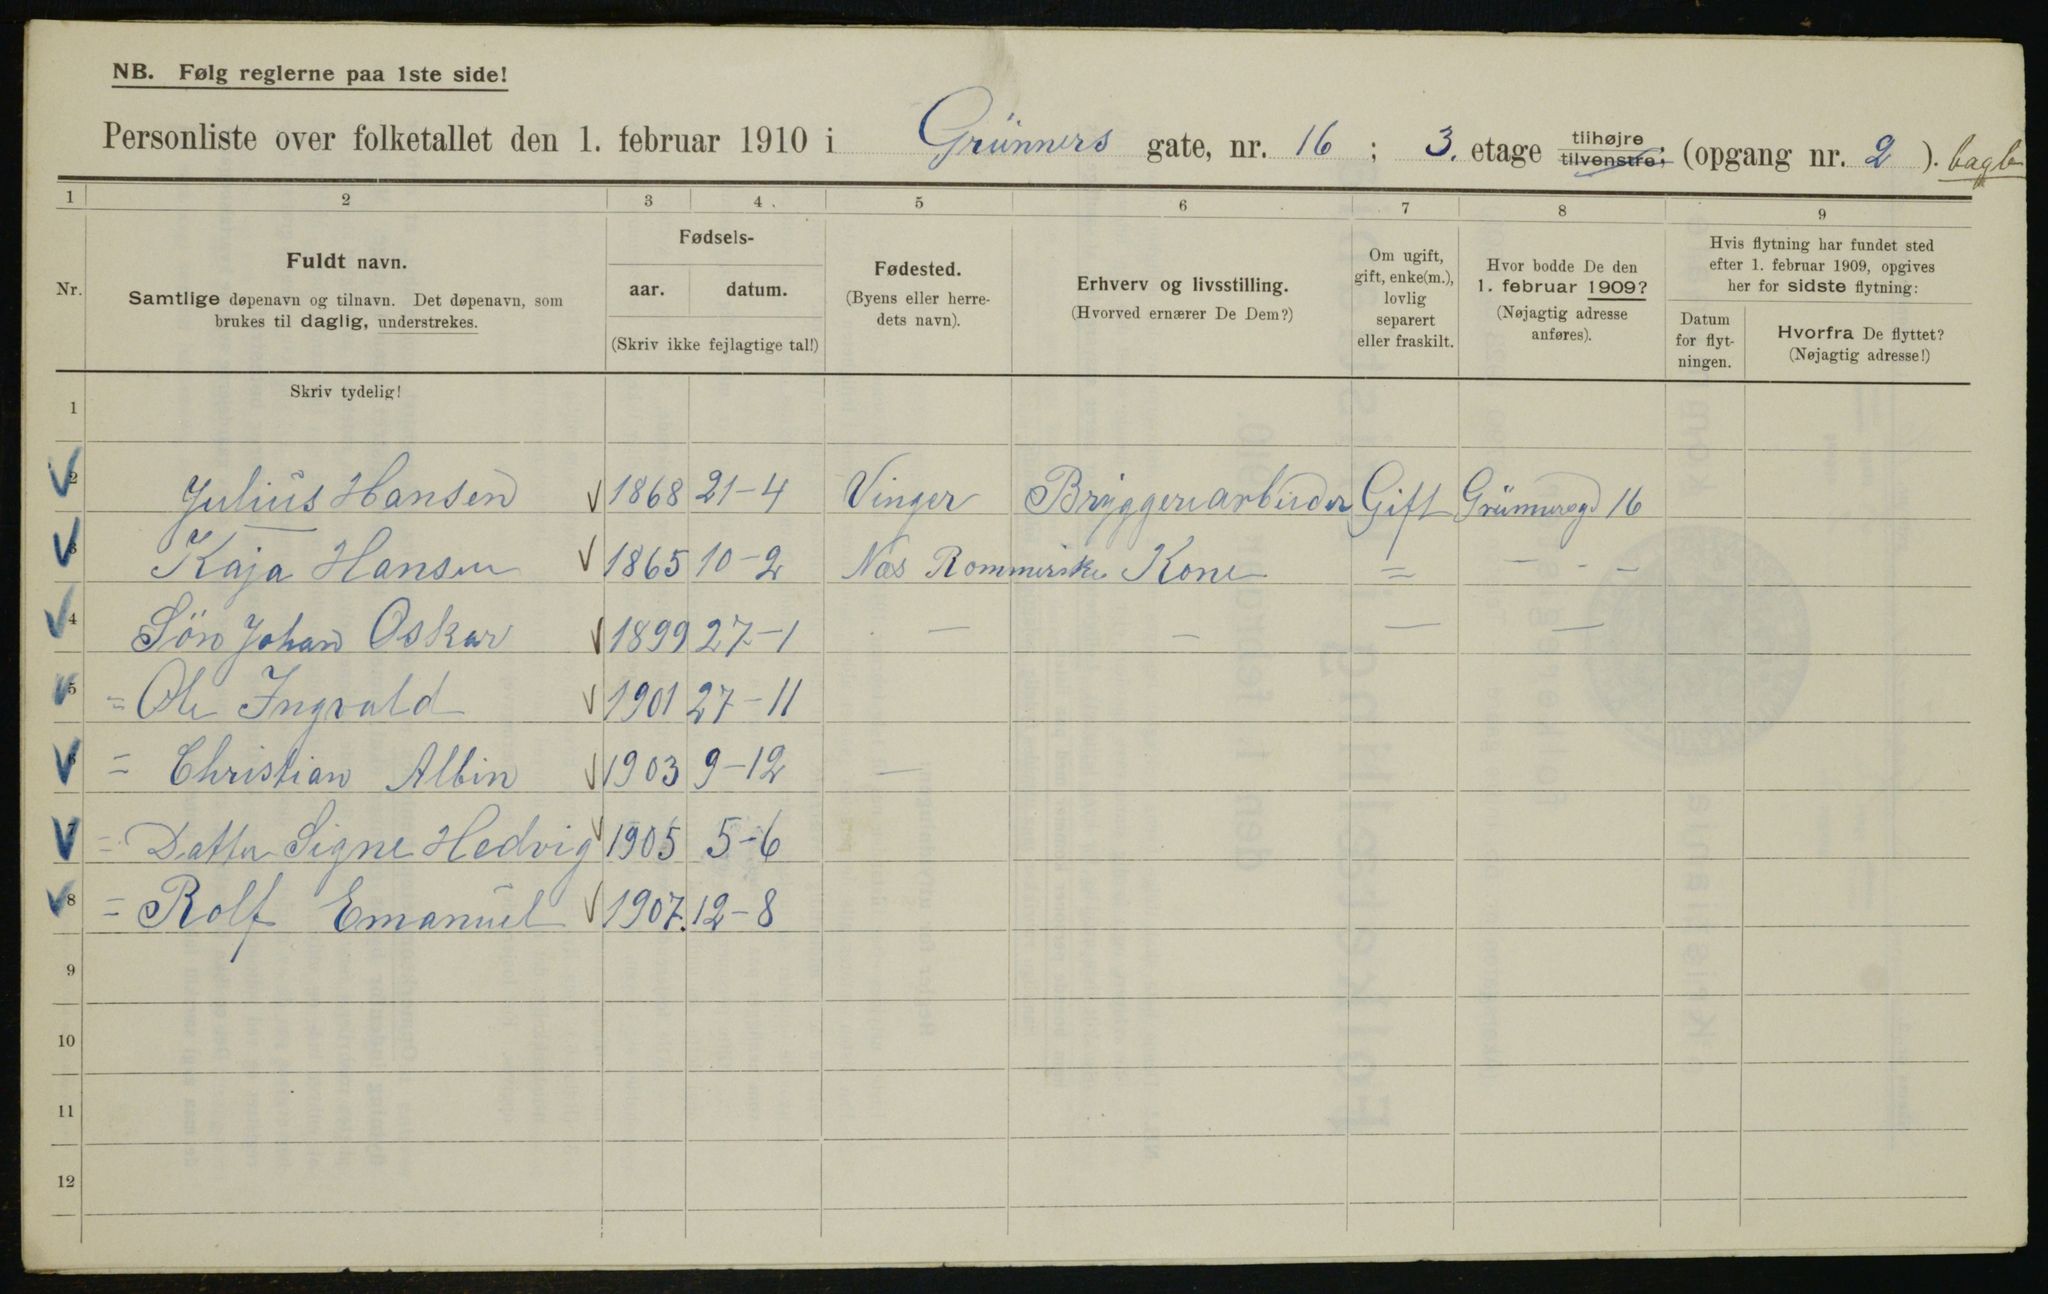 NB. Følg reglerne paa 1ste side!
Personliste over folketallet den 1. februar 1910 i Grünners gate, nr. 16 ; 3. etage tilhøjre tilvenstre; (opgang nr. 2 ). bagb
1 2 3 4 5 6 7 8 9
Nr.
Fuldt navn.
Samtlige døpenavn og tilnavn. Det døpenavn, som
brukes til daglig, understrekes.
Fødsels-
aar. datum.
(Skriv ikke fejlagtige tal!)
Fødested.
(Byens eller herre-
dets navn).
Erhverv og livsstilling.
(Hvorved ernærer De Dem?)
Om ugift,
gift, enke(m.),
lovlig
separert
eller fraskilt.
Hvor bodde De den
1. februar 1909?
(Nøjagtig adresse
anføres).
Hvis flytning har fundet sted
efter 1. februar 1909, opgives
her for sidste flytning:
Datum
for flyt-
ningen.
Hvorfra De flyttet?
(Nøjagtig adresse!)
Skriv tydelig!
1
2 Julius Hansen 1868 21-4 Vinger Bryggeriarbeider Gift Grünnersgd 16
3 Kaja Hansen 1865 10-2 Næs Rommerike Kone = - - -
4 Søn Johan Oskar 1899 27-1 — — — —
5 = Ole Ingvald 1901 27-11
6 = Christian Albin 1903 9-12 —
7 = Datter Signe Hedvig 1905 5-6
8 = Rolf Emanuel 1907. 12-8
9
10
11
12